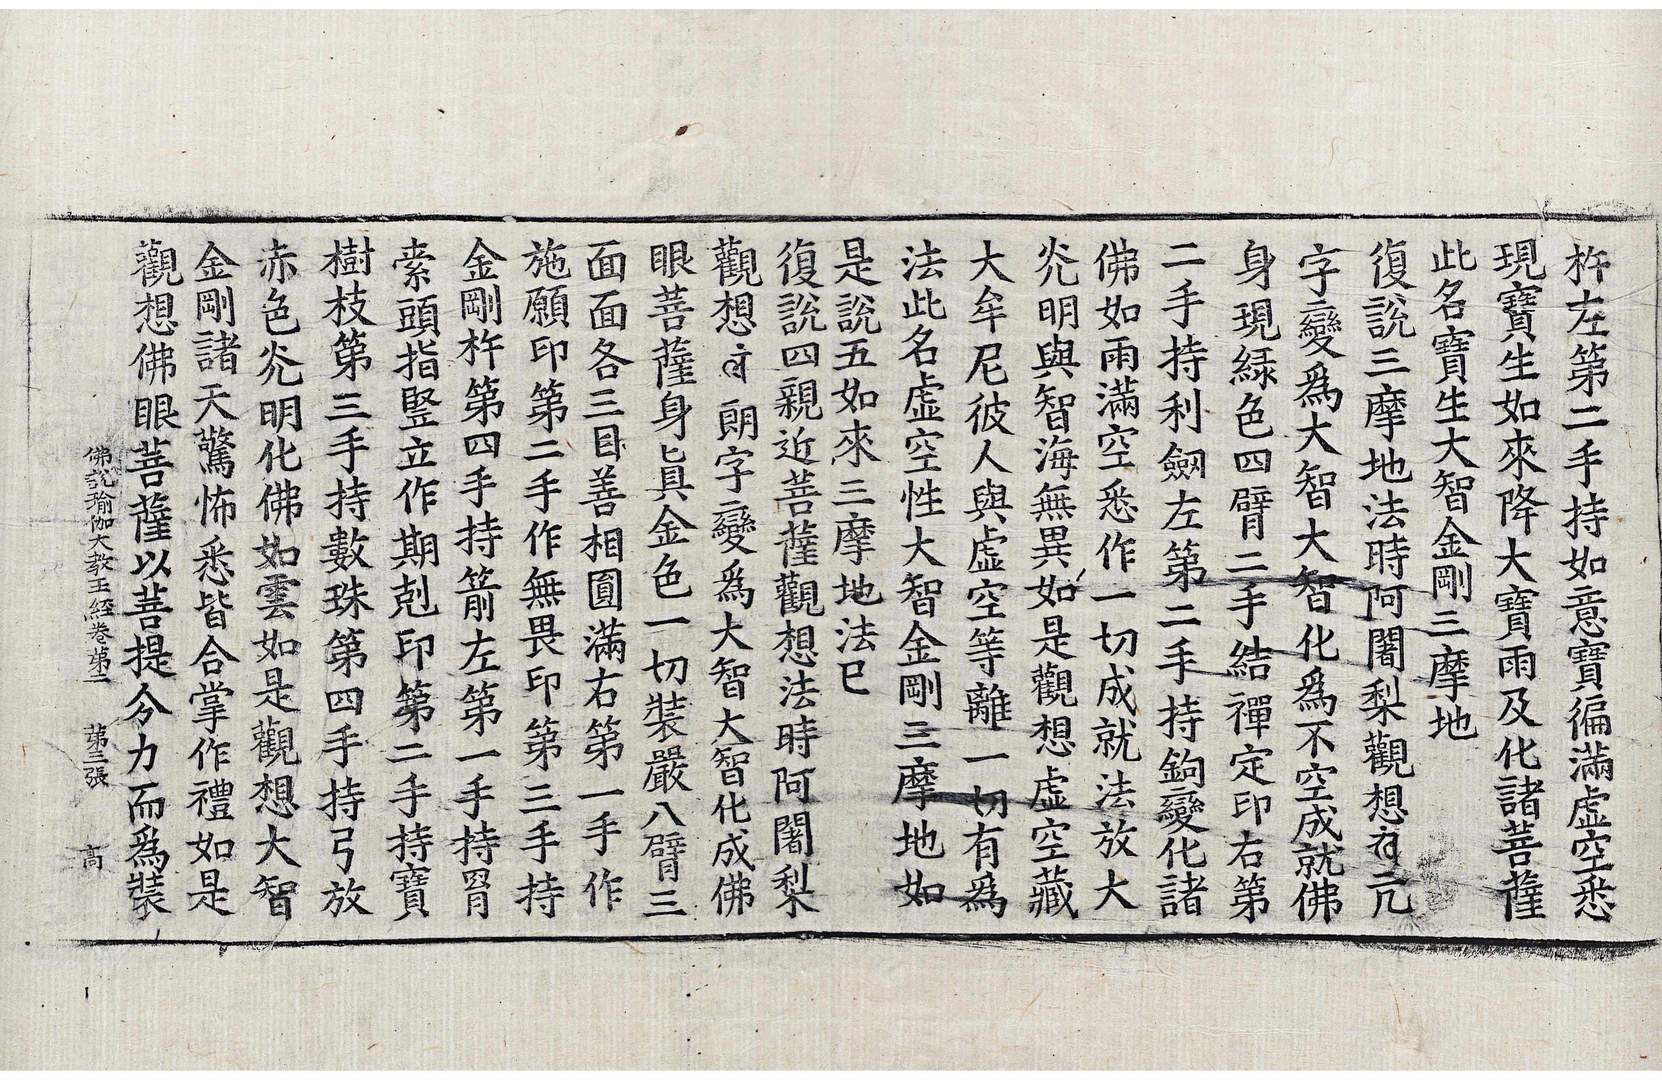 杵左第二手持如意寶徧滿虛空悉
現寶生如來降大寶雨及化諸菩薩
此名寶生大智金剛三摩地
復說三摩地法時阿闍梨觀想𑖀𑖽亢
字變爲大智大智化爲不空成就佛
身現緑色四臂二手結禪定印右第
二手持利劒左第二手持鉤變化諸
佛如雨滿空悉作一切成就法放大
光明與智海無異如是觀想虛空藏
大牟尼彼人與虛空等離一切有爲
法此名虛空性大智金剛三摩地如
是說五如來三摩地法已
復說四親近菩薩觀想法時阿闍梨
觀想朗字變爲大智大智化成佛
眼菩薩身眞金色一切裝嚴八臂三
面面各三目善相圓滿右第一手作
施願印第二手作無畏印第三手持
金剛杵第四手持箭左第一手持罥
索頭指豎立作期剋印第二手持寶
樹枝第三手持數珠第四手持弓放
赤色光明化佛如雲如是觀想大智
金剛諸天驚怖悉皆合掌作禮如是
觀想佛眼菩薩以菩提分力而爲裝
佛說瑜伽大教王經卷第二　第三張　高